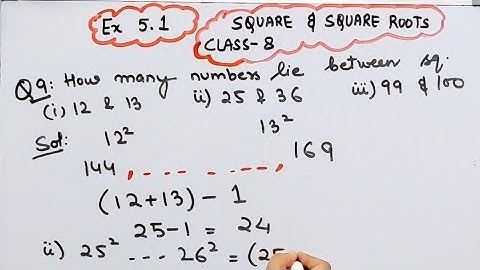 Ex 5.1 SQUARE & SQUARE ROOTS
CLASS-8
Q9: How many numbers lie between sq:
(i) 12 & 13 ii) 25 & 36 iii) 99 & 100
Sol: 12² 13²
144, - - - - - - -, 169
(12+13) - 1
25-1 = 24
ii) 25² --- 26² = (25